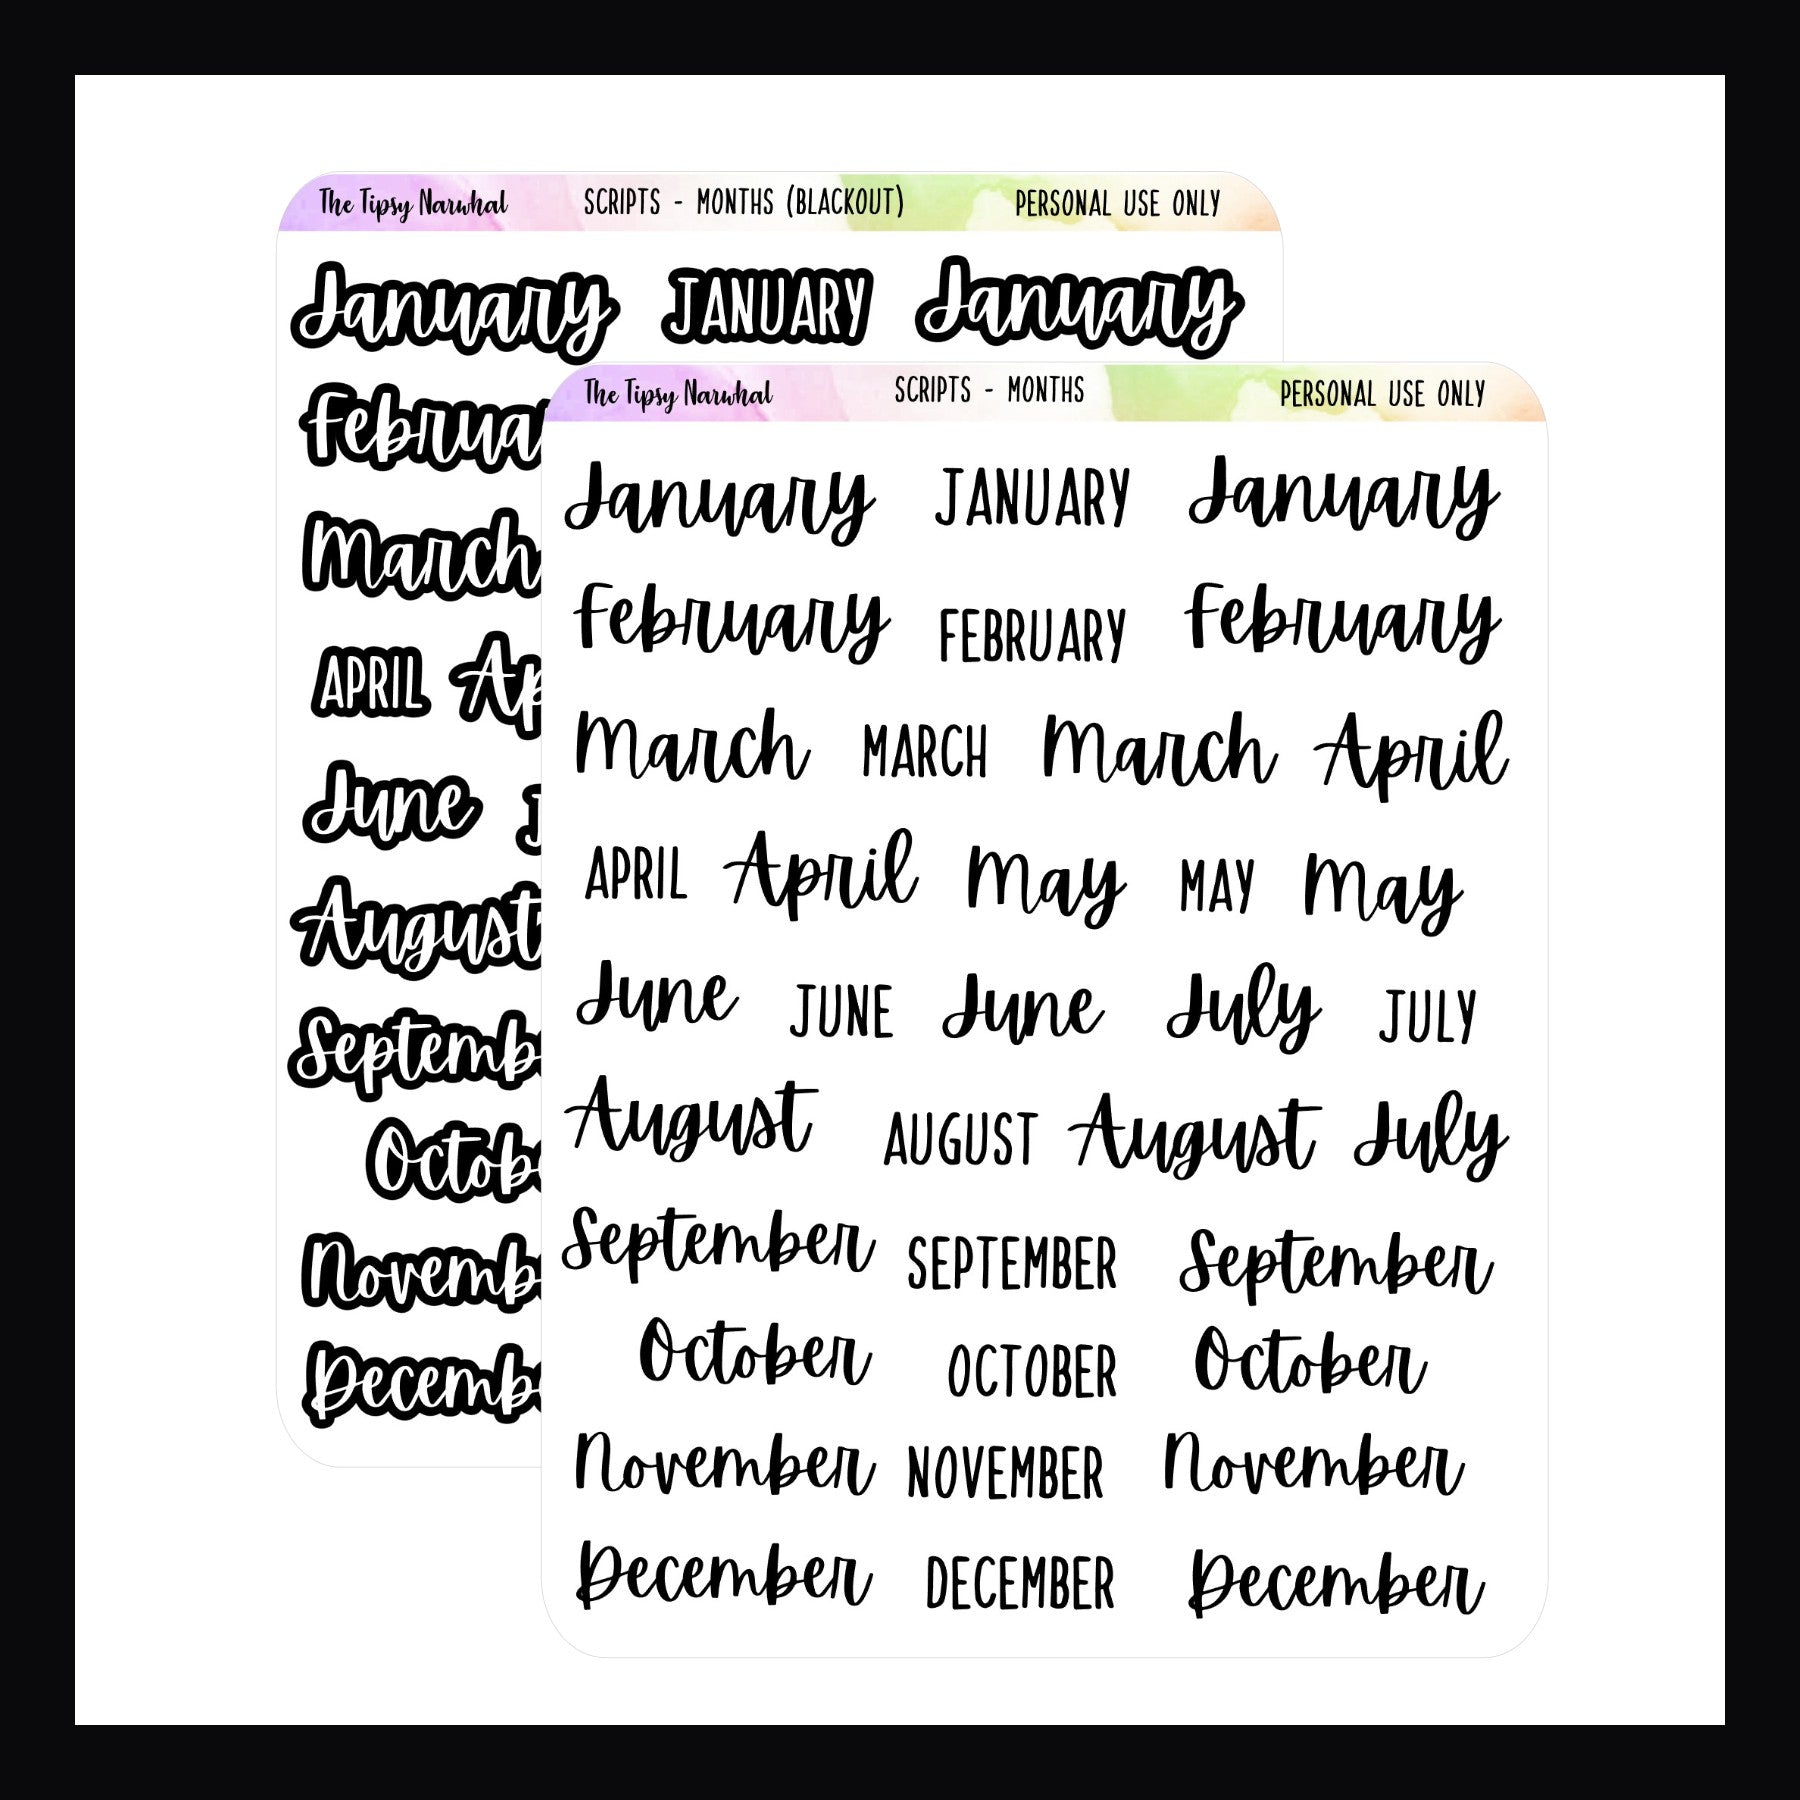 The Tipsy Narwhal SCRIPTS - MONTHS (BLACKOUT) PERSONAL USE ONLY
January JANUARY January
Februa
March
APRIL Ap
June J
August
Septemb
Octob
Novemb
Decemb
The Tipsy Narwhal SCRIPTS - MONTHS PERSONAL USE ONLY
January JANUARY January
February FEBRUARY February
March MARCH March April
APRIL April May MAY May
June JUNE June July JULY
August AUGUST August July
September SEPTEMBER September
October OCTOBER October
November NOVEMBER November
December DECEMBER December